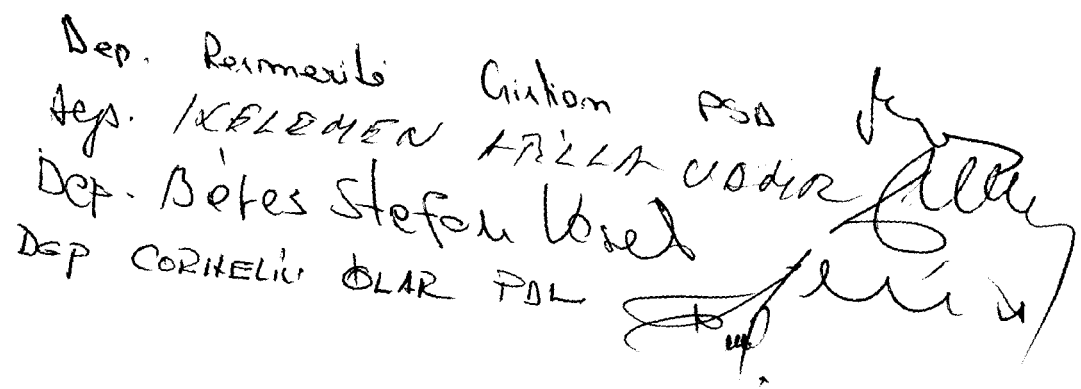 Dep. Cristian PSD
Dep. KELEMEN ATILLA UDMR
Dep. Béres Ștefan Vasel
DEP CORNELIU OLAR PDL